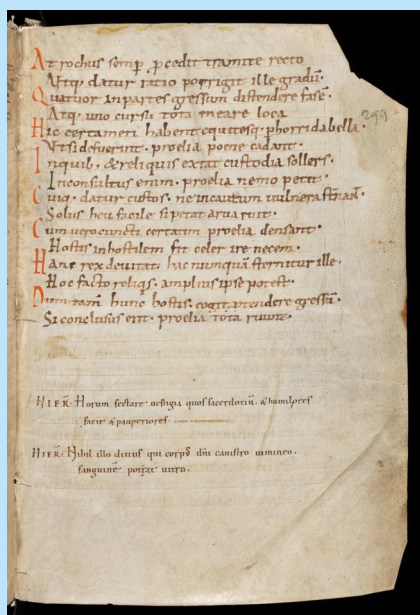 At rochus semp pcedit tramite recto
Utq; datur ratio porrigit ille gradū.
Quatuor inpartes gressum distendere fas ē.
Atq; uno cursu tota meare loca
299
Hic certamen habent equites q; phorrida bella.
Ut si defuerint. proelia poene cadant.
In quib; & reliquis extat custodia sollers.
Inconsultus enim. proelia nemo petit.
Cuiq; datur custos. ne incautum vulnera sternant.
Solus heu facile si petat arua ruit.
Cum uero cuncta certatim proelia densant.
Hostis inhostilem fit celer ire necem.
Hanc rex deuitat. hac numquā sternitur ille.
Hoc facto reliqs. amplius ipse potest.
Dum tam hunc hostis. cogit ptendere gressū.
Si conclusus erit. proelia tota ruunt.
HIER. Horum sectare uestigia quos sacerdotiū. & humilores
facit & pauperiores.
HIER. Nihil illo ditius qui corpus dni canistro uimineo.
sanguinē portat uitro.